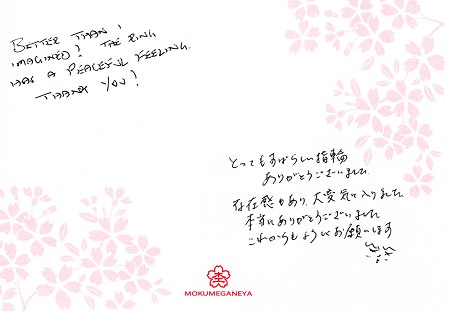 BETTER THAN I
IMAGINED! THE RING
HAS A PEACEFUL FEELING.
THANK YOU!
とってもすばらしい指輪
ありがとうございました。
存在感もあり、大変気に入りました。
本当にありがとうございました
これからもよろしくお願いします
MOKUMEGANEYA